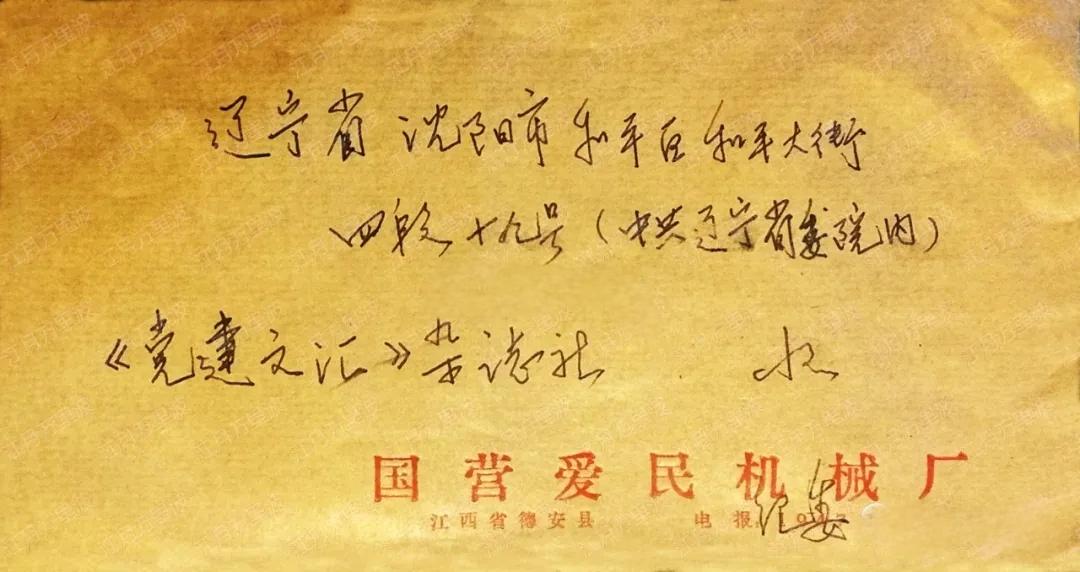 辽宁省沈阳市和平区和平大街
四段十九号（中共辽宁省委院内）
《党建文汇》杂志社 收
国营爱民机械厂
纪委
江西省德安县 电报